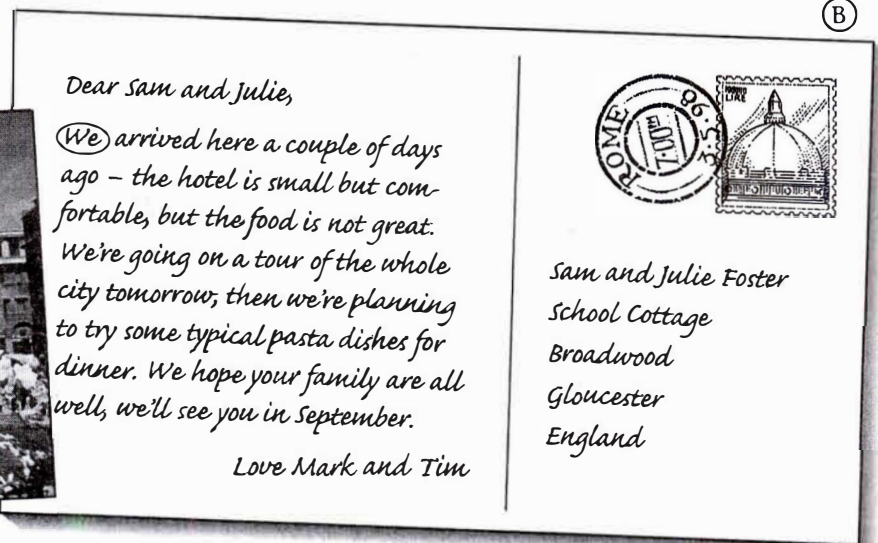 B
Dear Sam and Julie,
We arrived here a couple of days
ago – the hotel is small but com-
fortable, but the food is not great.
We're going on a tour of the whole
city tomorrow, then we're planning
to try some typical pasta dishes for
dinner. We hope your family are all
well, we'll see you in September.
Love Mark and Tim
ROME
7.00
3.5.98
LIRE
Sam and Julie Foster
School Cottage
Broadwood
Gloucester
England